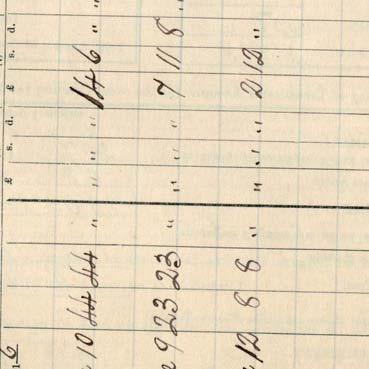 6 £ s. d. £ s. d.
10 44 44 " " " " 14 6 " "
9 23 23 " " " " 7 11 8 "
12 8 8 " " " " 2 12 "